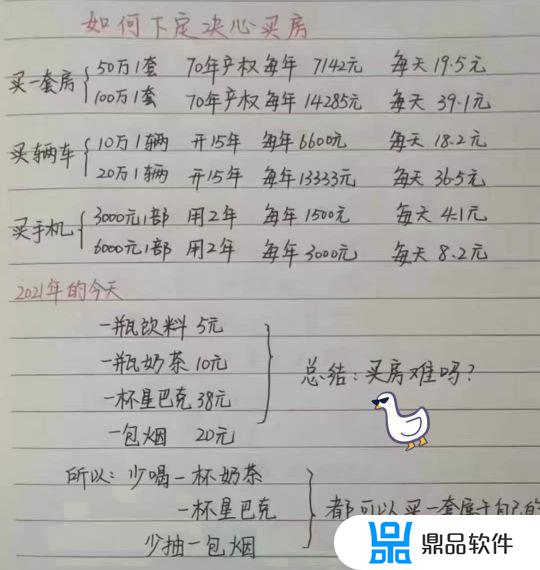 如何下定决心买房
买一套房 50万1套 70年产权每年 7142元 每天 19.5元
100万1套 70年产权每年 14285元 每天 39.1元
买辆车 10万1辆 开15年 每年6600元 每天 18.2元
20万1辆 开15年 每年13333元 每天 36.5元
买手机 3000元1部 用2年 每年 1500元 每天 4.1元
6000元1部 用2年 每年 3000元 每天 8.2元
2021年的今天
一瓶饮料 5元
一瓶奶茶 10元
一杯星巴克 38元
一包烟 20元
总结:买房难吗?
所以:少喝一杯奶茶
一杯星巴克
少抽一包烟
都可以买一套属于自己的
鼎品软件